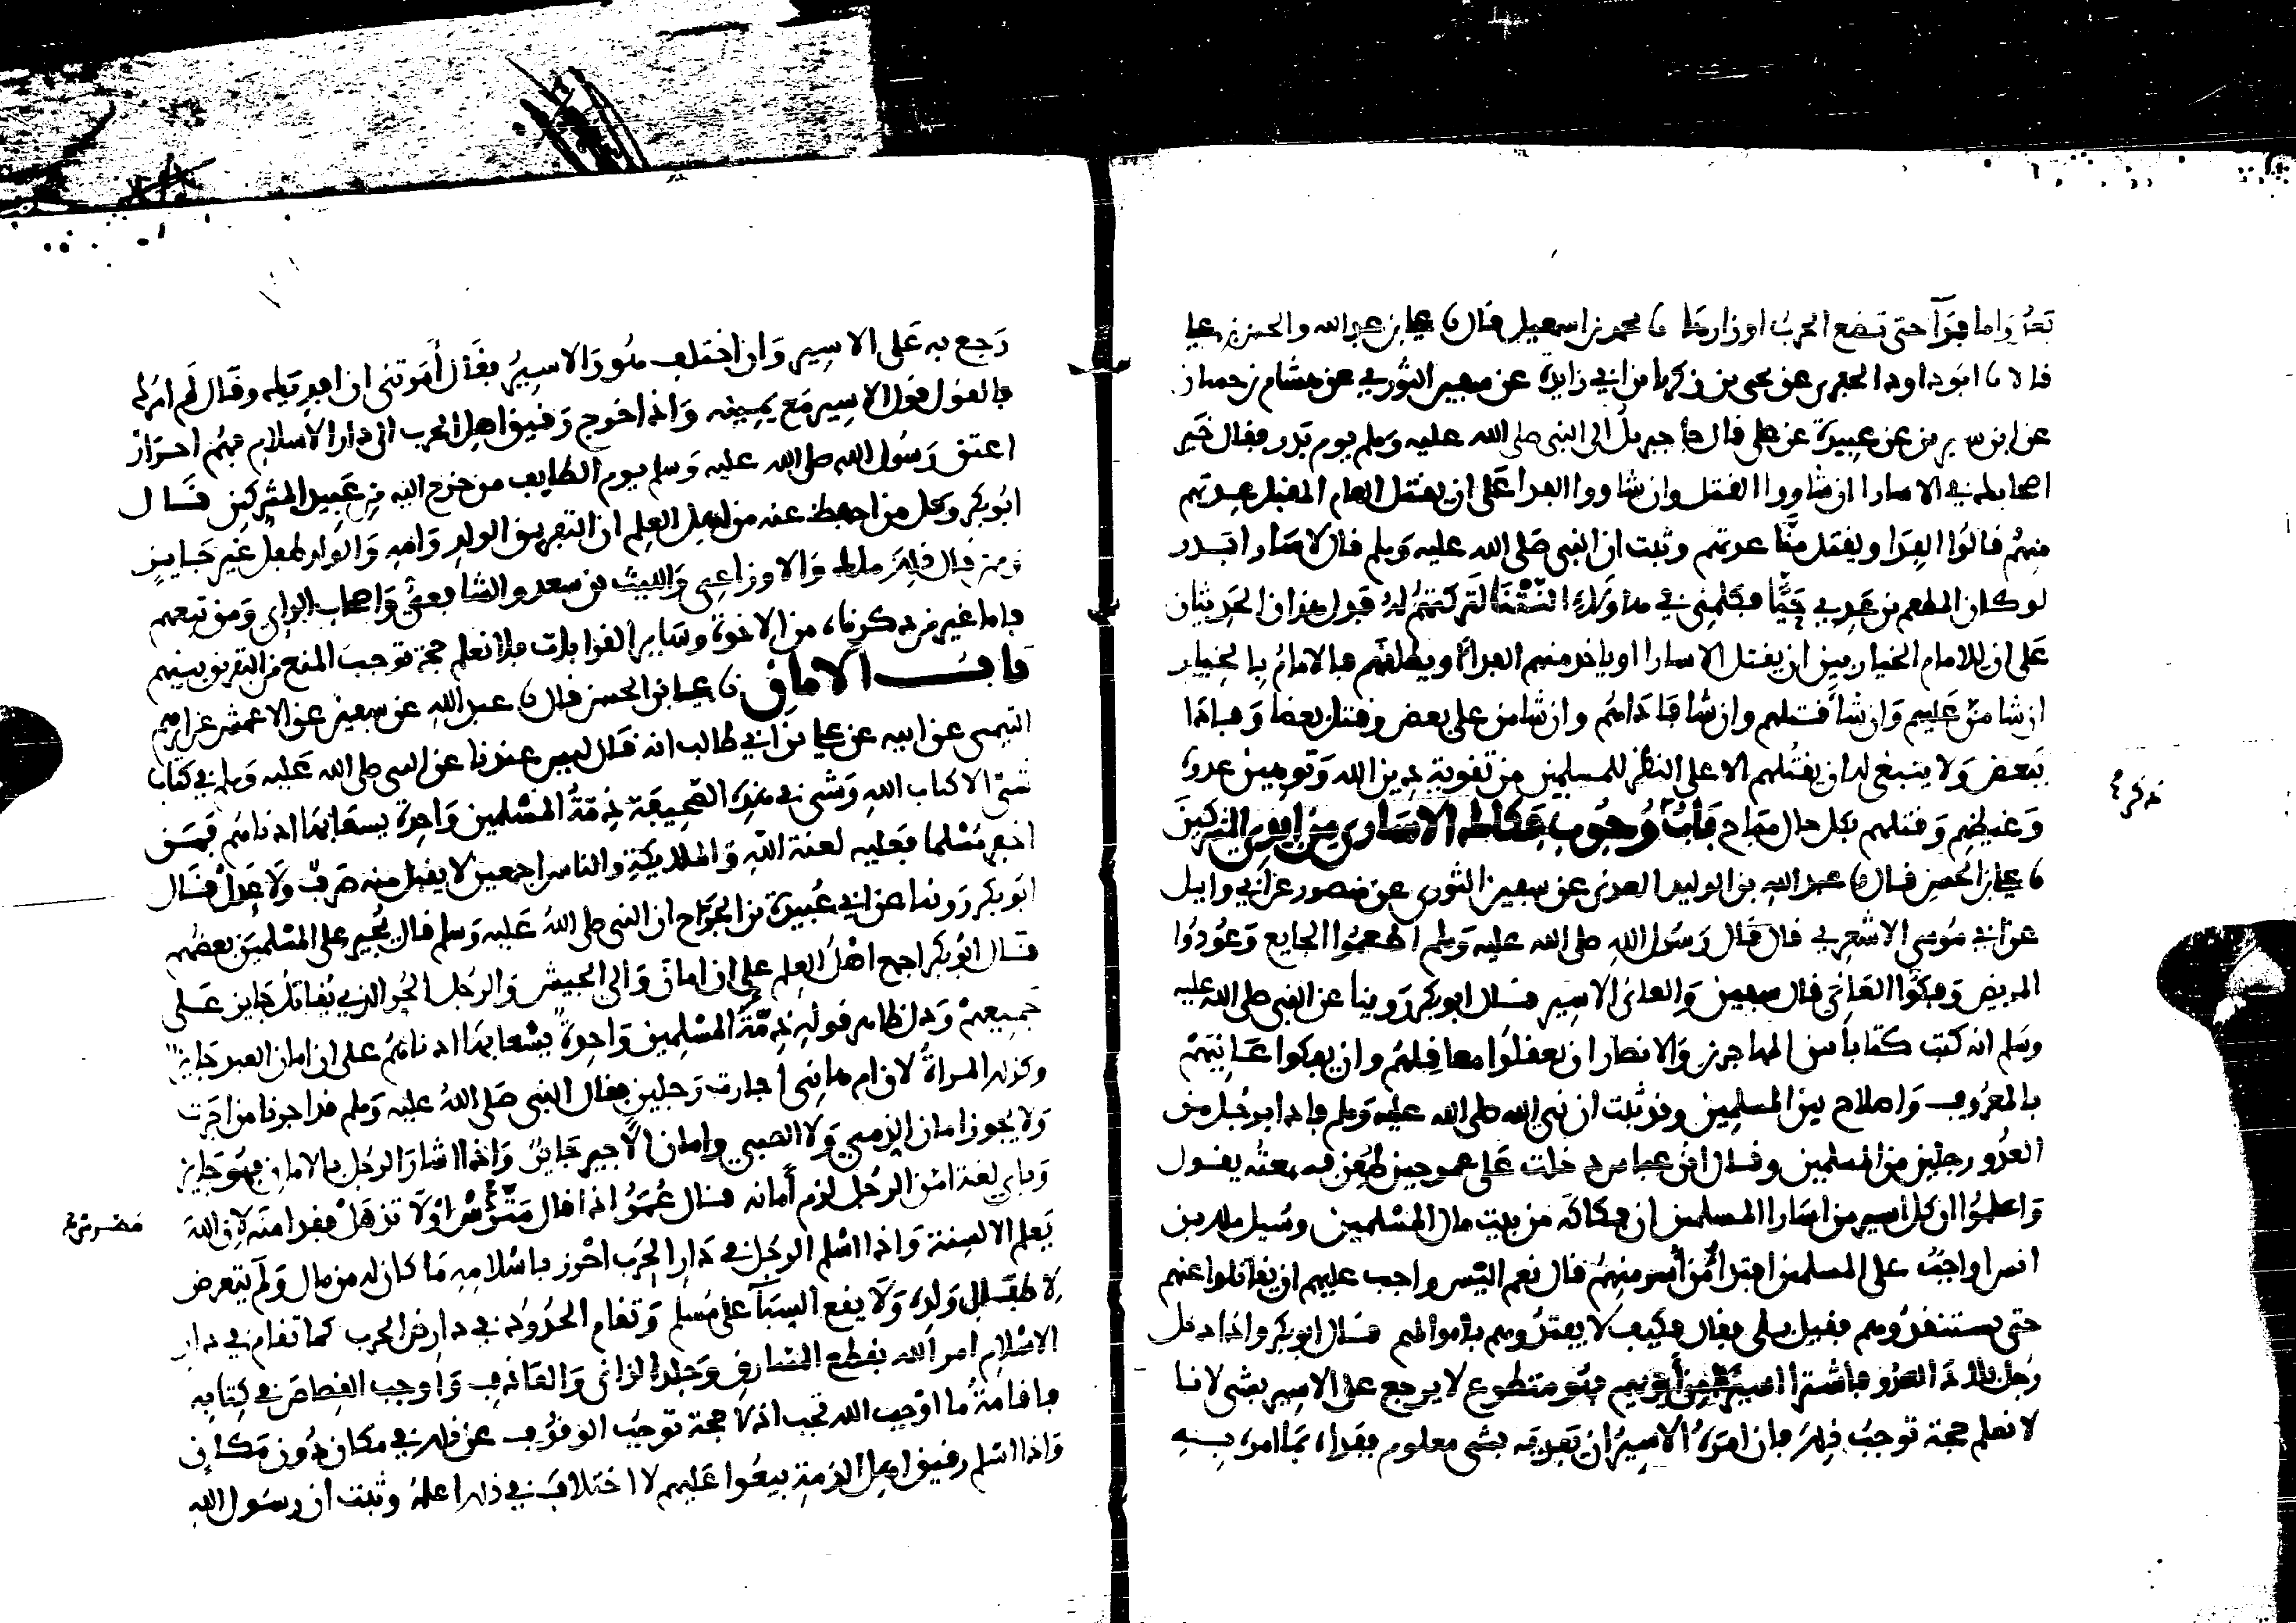 بعد واما فداء حتى تضع الحرب اوزارها نا محمد بن اسمعيل قال نا علي بن عبد الله والحسن بن علي
قالا نا ابو داود الحفري عن يحيى بن زكريا بن ابي زايدة عن سفين الثوري عن هشام بن حسان
عن ابن سيرين عن عبيدة عن علي قال جا جبريل الى النبي صلى الله عليه وسلم يوم بدر فقال خير
اصحابك في الاسارا ان شاووا القتل وان شاووا الفدا على ان يقتل العام المقبل عدتهم
منهم قالوا الفدا ويقتل منا عدتهم وثبت ان النبي صلى الله عليه وسلم قال لاسارا بدر
لو كان المطعم بن عدي حيا فكلمني في هاولاء النتنا لتركتهم له فدل هذان الحديثان
على ان للامام الخيار بين ان يقتل الاسارا او ياخذ منهم الفدا او يطلقهم فالامام بالخيار
ان شا من عليهم وان شا قتلهم وان شا فاداهم وان شا من على بعض وقتل بعضا وفادا
ببعض ولا ينبغي له ان يقتلهم الا على النظر للمسلمين من تقوية دين الله وتوهين عدوه
وغيظهم وقتلهم بكل حال مباح باب وجوب فكاك الاسارى من ايدي المشركين
نا علي بن الحسن قال نا عبد الله بن الوليد العدني عن سفين الثوري عن منصور عن ابي وايل
عن ابي موسى الاشعري قال قال رسول الله صلى الله عليه وسلم اطعموا الجايع وعودوا
المريض وفكوا العاني قال سفين والعاني الاسير قال ابو بكر روينا عن النبي صلى الله عليه
وسلم انه كتب كتابا بين المهاجرين والانصار ان يعقلوا معاقلهم وان يفكوا عانيهم
بالمعروف واصلاح بين المسلمين وقد ثبت ان نبي الله صلى الله عليه وسلم فادا برجل من
العدو رجلين من المسلمين وقال ابن عباس دخلت على عمر حين طعن فسمعته يقول
واعلموا ان كل اسير من اسارا المسلمين ان فكاكه من بيت مال المسلمين وسيل ملك بن
انس اواجب على المسلمين افتدا من أسر منهم قال نعم اليس واجب عليهم ان يقاتلوا عنهم
حتى يستنقذوهم فقيل بلى فقال فكيف لا يفتدونهم باموالهم قال ابو بكر واذا دخل
رجل بلاد العدو فاشترا اسيرا من ايديهم فهو متطوع لا يرجع على الاسير بشي لانا
لا نعلم حجة توجب ذلك فان امره الاسير ان يفديه بشي معلوم ففداه بما امره به
ذكره
رجع به على الاسير وان اختلف هو والاسير فقال أمرتني ان افديك وقال لم امرك
فالقول قول الاسير مع يمينه واذا خرج رقيق اهل الحرب الى دار الاسلام فهم احرار
اعتق رسول الله صلى الله عليه وسلم يوم الطايف من خرج اليه من عبيد المشركين قال
ابو بكر وكل من احفظ عنه من اهل العلم ان التفريق الولد وامه والولد طفل غير جايز
وممن قال ذلك ملك والاوزاعي والليث بن سعد والشافعي واصحاب الراي ومن تبعهم
فاما غير من ذكرنا من الاخوة وساير القرابات فلا نعلم حجة توجب المنع من التفريق بينهم
باب الامان نا علي بن الحسن قال نا عبد الله عن سفين عن الاعمش عن ابرهيم
التيمي عن ابيه عن علي بن ابي طالب انه قال ليس عندنا عن النبي صلى الله عليه وسلم في كتاب
شي الا كتاب الله وشي في هذه الصحيفة ذمة المسلمين واحدة يسعا بها ادناهم فمن
اخفر مسلما فعليه لعنة الله والملايكة والناس اجمعين لا يقبل منه صرف ولا عدل قال
ابو بكر روينا عن ابي عبيدة بن الجراح ان النبي صلى الله عليه وسلم قال يجير على المسلمين بعضهم
قال ابو بكر اجمع اهل العلم على ان امان والي الجيش والرجل الحر الذي يقاتل جايز على
جميعهم ودل ظاهر قوله ذمة المسلمين واحدة يسعا بها ادناهم على ان امان العبد جايز
وكذلك المراة لان ام هاني اجارت رجلين فقال النبي صلى الله عليه وسلم قد اجرنا من اجرت
ولا يجوز امان الذمي ولا الصبي وامان الاجير جايز واذا اشار الرجل بالامان فهو جايز
وباي لغة امن الرجل لزم أمانه قال عمر اذا قال مترس او لا تذهل فقد امنه لان الله
يعلم الالسنة واذا اسلم الرجل في دار الحرب احرز باسلامه ما كان له من مال ولم يتعرض
لاطفال ولده ولا يقع السبا على مسلم وتقام الحدود في دار ارض الحرب كما تقام في دار
الاسلام امر الله بقطع السارق وجلد الزاني والقاذف واوجب القصاص في كتابه
فاقامة ما اوجب الله تجب اذ لا حجة توجب الوقوف عن ذلك في مكان دون مكان
واذا اسلم رقيق اهل الذمة بيعوا عليهم لا اختلاف في ذلك اعلمه وثبت ان رسول الله